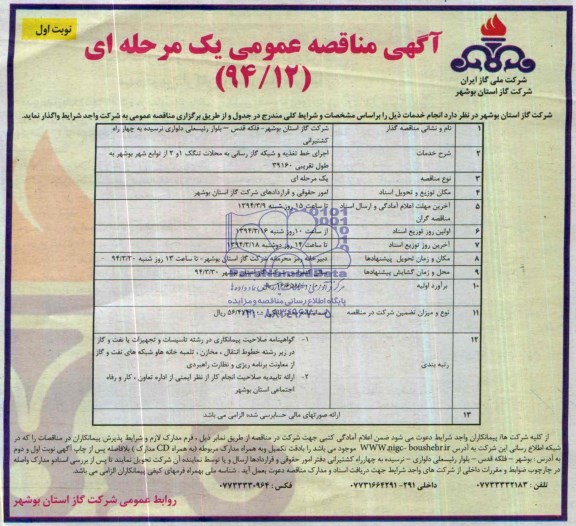 نوبت اول
آگهی مناقصه عمومی یک مرحله ای
(۹۴/۱۲)
شرکت ملی گاز ایران
شرکت گاز استان بوشهر
شرکت گاز استان بوشهر در نظر دارد انجام خدمات ذیل را براساس مشخصات و شرایط کلی مندرج در جدول و از طریق برگزاری مناقصه عمومی به شرکت واجد شرایط واگذار نماید.
۱ نام و نشانی مناقصه گذار شرکت گاز استان بوشهر- فلکه قدس – بلوار رئیسعلی دلواری نرسیده به چهار راه کشتیرانی
۲ شرح خدمات اجرای خط تغذیه و شبکه گاز رسانی به محلات تنگک ۱و ۲ از توابع شهر بوشهر به طول تقریبی ۳۹۱۶۰
۳ نوع مناقصه یک مرحله ای
۴ مکان توزیع و تحویل اسناد امور حقوقی و قراردادهای شرکت گاز استان بوشهر
۵ آخرین مهلت اعلام آمادگی و ارسال اسناد مناقصه گران تا ساعت ۱۵ روز شنبه ۱۳۹۴/۳/۹
۶ اولین روز توزیع اسناد از ساعت ۱۰ روز شنبه ۱۳۹۴/۳/۱۶
۷ آخرین روز توزیع اسناد تا ساعت ۱۴ روز دوشنبه ۱۳۹۴/۳/۱۸
۸ مکان و زمان تحویل پیشنهادها دبیرخانه رمز محرمانه شرکت گاز استان بوشهر- تا ساعت ۱۳ روز شنبه ۹۴/۳/۳۰
۹ محل و زمان گشایش پیشنهادها ۹۴/۳/۳۰
۱۰ برآورد اولیه ریال
۱۱ نوع و میزان تضمین شرکت در مناقصه ریال
۱۲ رتبه بندی
۱- گواهینامه صلاحیت پیمانکاری در رشته تاسیسات و تجهیزات یا نفت و گاز در زیر رشته خطوط انتقال ، مخازن ، تلمبه خانه هاو شبکه های نفت و گاز از معاونت برنامه ریزی و نظارت راهبردی
۲- ارائه تاییدیه صلاحیت انجام کار از نظر ایمنی از اداره تعاون ، کار و رفاه اجتماعی استان بوشهر
۱۳ ارائه صورتهای مالی حسابرسی شده الزامی می باشد
پایگاه اطلاع رسانی مناقصه و مزایده
از کلیه شرکت ها/ پیمانکاران واجد شرایط دعوت می شود ضمن اعلام آمادگی کتبی جهت شرکت در مناقصه از طریق نمابر ذیل ، فرم مدارک لازم و شرایط پذیرش پیمانکاران در مناقصات را که در
شبکه اطلاع رسانی این شرکت به آدرس WWW.nigc- boushehr.ir موجود می باشد را یافت تکمیل وبه همراه مدارک مربوطه (به همراه CD مدارک ) بلافاصله پس از چاپ آگهی نوبت اول و دوم
به آدرس : بوشهر - فلکه قدس – بلوار رئیسعلی دلواری – نرسیده به چهارراه کشتیرانی دفتر امور حقوقی و قراردادها ارسال و یا توسط نماینده آن شرکت تحویل نمایند تا پس از بررسی اسنادو مدارک واصله
در چهارچوب ضوابط و مقررات داخلی از شرکت های واجد شرایط جهت دریافت اسناد و مدارک مناقصه دعوت بعمل آید . شناسه ملی بهمراه فرمهای کیفی پیمانکاران الزامی می باشد.
تلفن : ۰۷۷۳۳۳۳۲۱۸۳ داخلی ۲۹۱- ۰۷۷۳۱۶۶۴۲۹۱ فکس : ۰۷۷۳۳۳۳۰۹۶۴
روابط عمومی شرکت گاز استان بوشهر